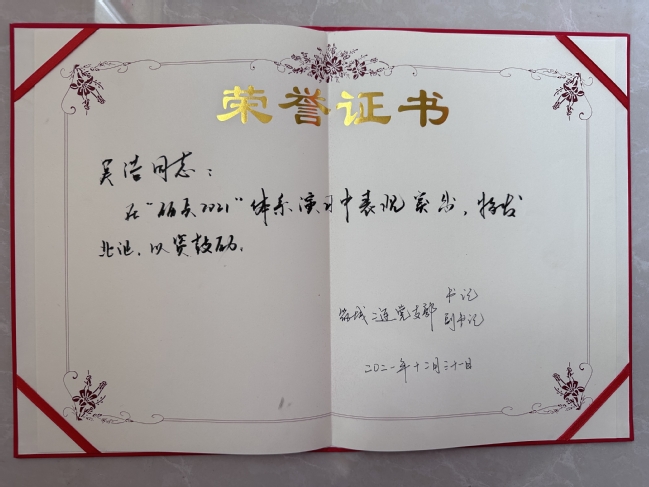 荣誉证书
吴浩同志：
在“砺兵2021”体系演习中表现突出，特发
此证，以资鼓励。
书记
二连党支部 副书记
二〇二一年十二月三十一日